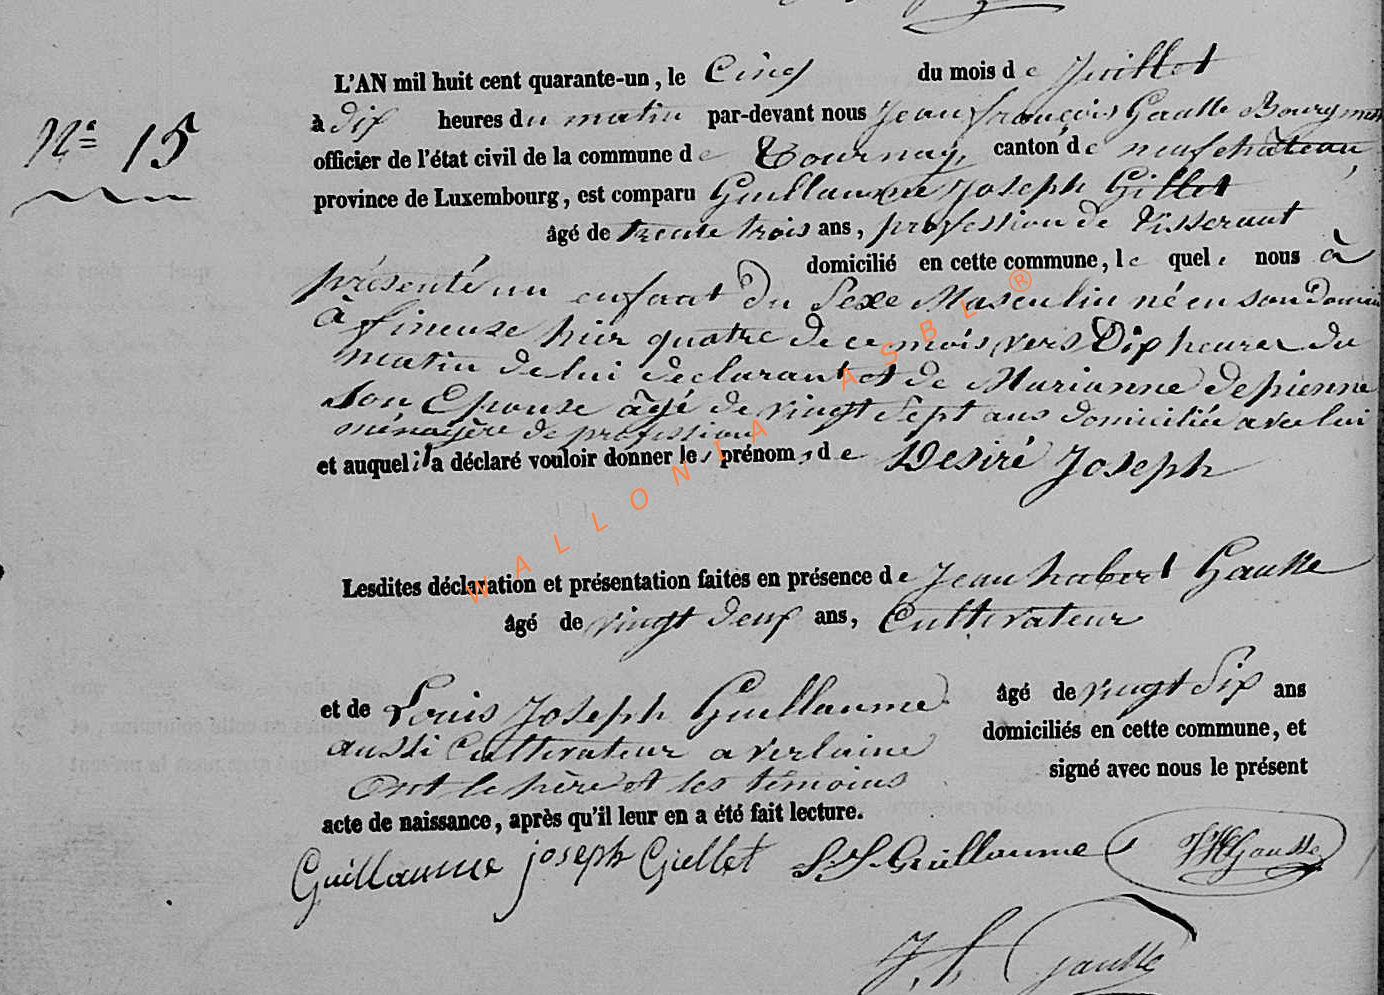 L'AN mil huit cent quarante-un, le Cinq du mois de Juillet
à dix heures du matin par-devant nous Jean françois Gausse Bourgmes
Nº 15
officier de l'état civil de la commune de Tournay, canton de neufchâteau,
province de Luxembourg, est comparu Guillaume Joseph Gillet
âgé de trente trois ans, profession de Tisserant
domicilié en cette commune, le quel nous à
présenté un enfant du Sexe Masculin né en son domici
à fineuse hier quatre de ce mois, vers Dix heures du
matin de lui déclarant et de Marianne Depienne
Son Epouse âgé de vingt Sept ans domiciliée avec lui
ménagère de profession
et auquel il a déclaré vouloir donner les prénoms de Desiré Joseph
Lesdites déclaration et présentation faites en présence de Jean hubert Gausse
âgé de vingt deux ans, Cultivateur
et de Louis Joseph Guillaume âgé de vingt Six ans
aussi Cultivateur a verlaine domiciliés en cette commune, et
Ont le père et les témoins signé avec nous le présent
acte de naissance, après qu'il leur en a été fait lecture.
Guillaume joseph Giellet L. J. Guillaume JHGausse
J. f. Gausse
WALLONIA ASBL ®